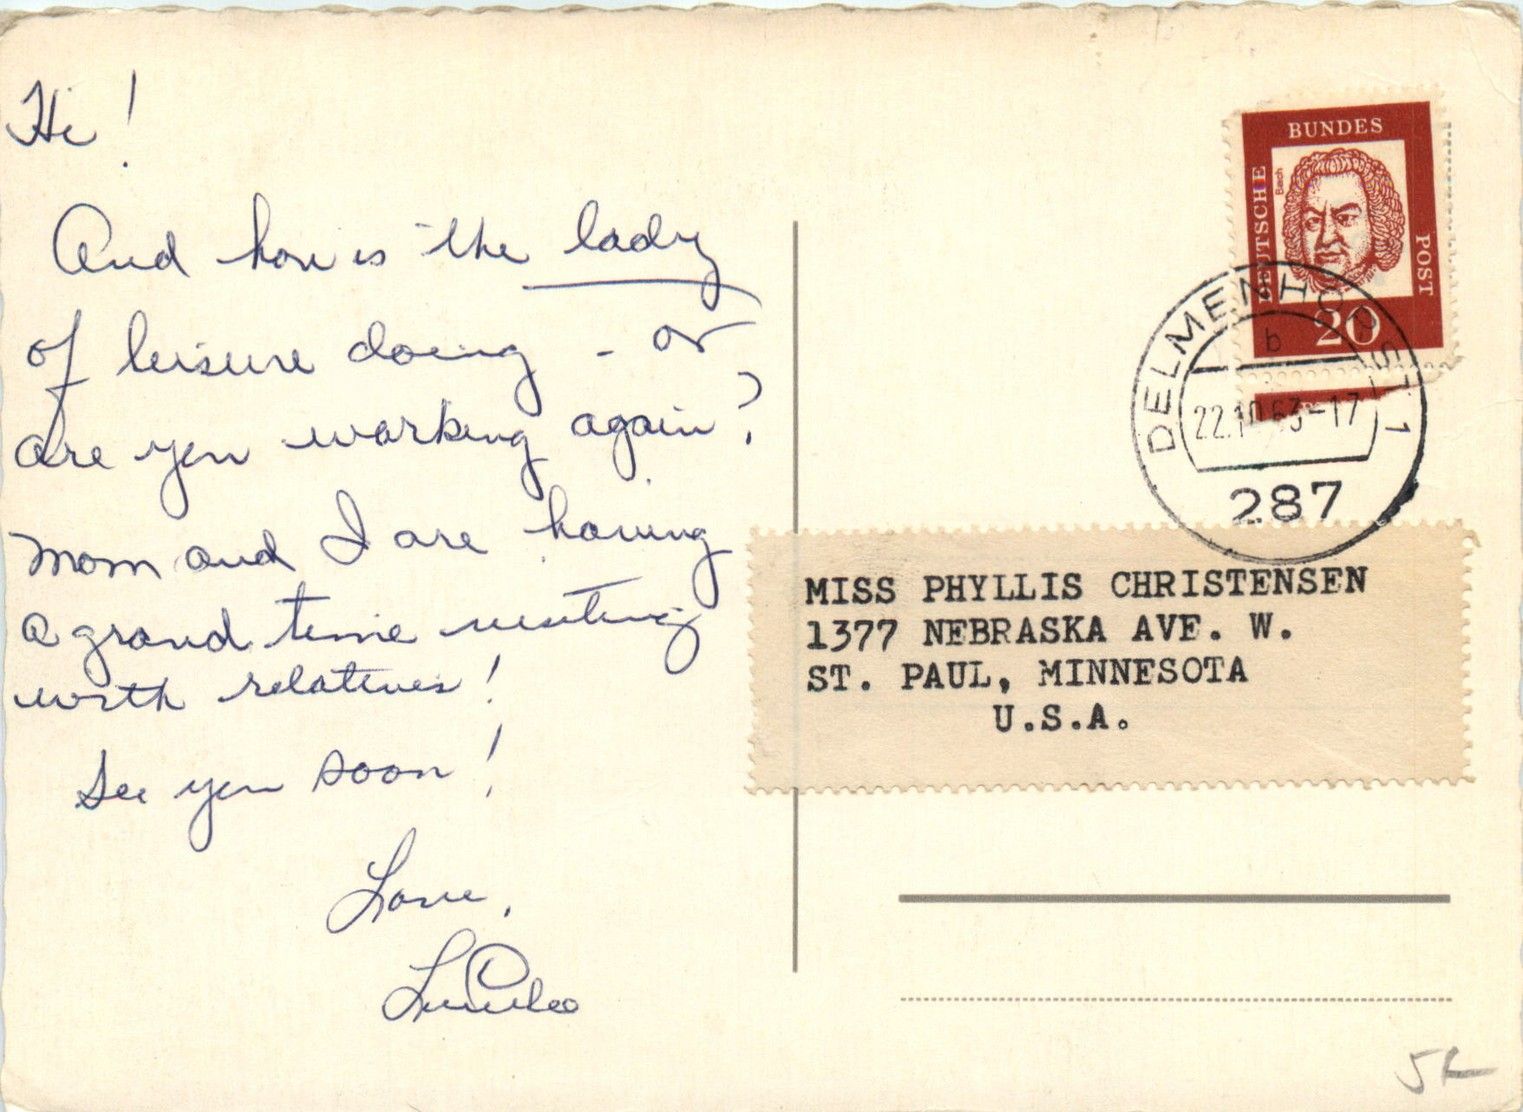 Hi!
And how is the lady
of leisure doing - or
are you working again?
Mom and I are having
a grand time visiting
with relatives!
See you soon!
Love,
DEUTSCHE
BUNDES
POST
Bach
20
DELMENHORST 1
b
22.10.63-17
287
MISS PHYLLIS CHRISTENSEN
1377 NEBRASKA AVE. W.
ST. PAUL, MINNESOTA
U.S.A.